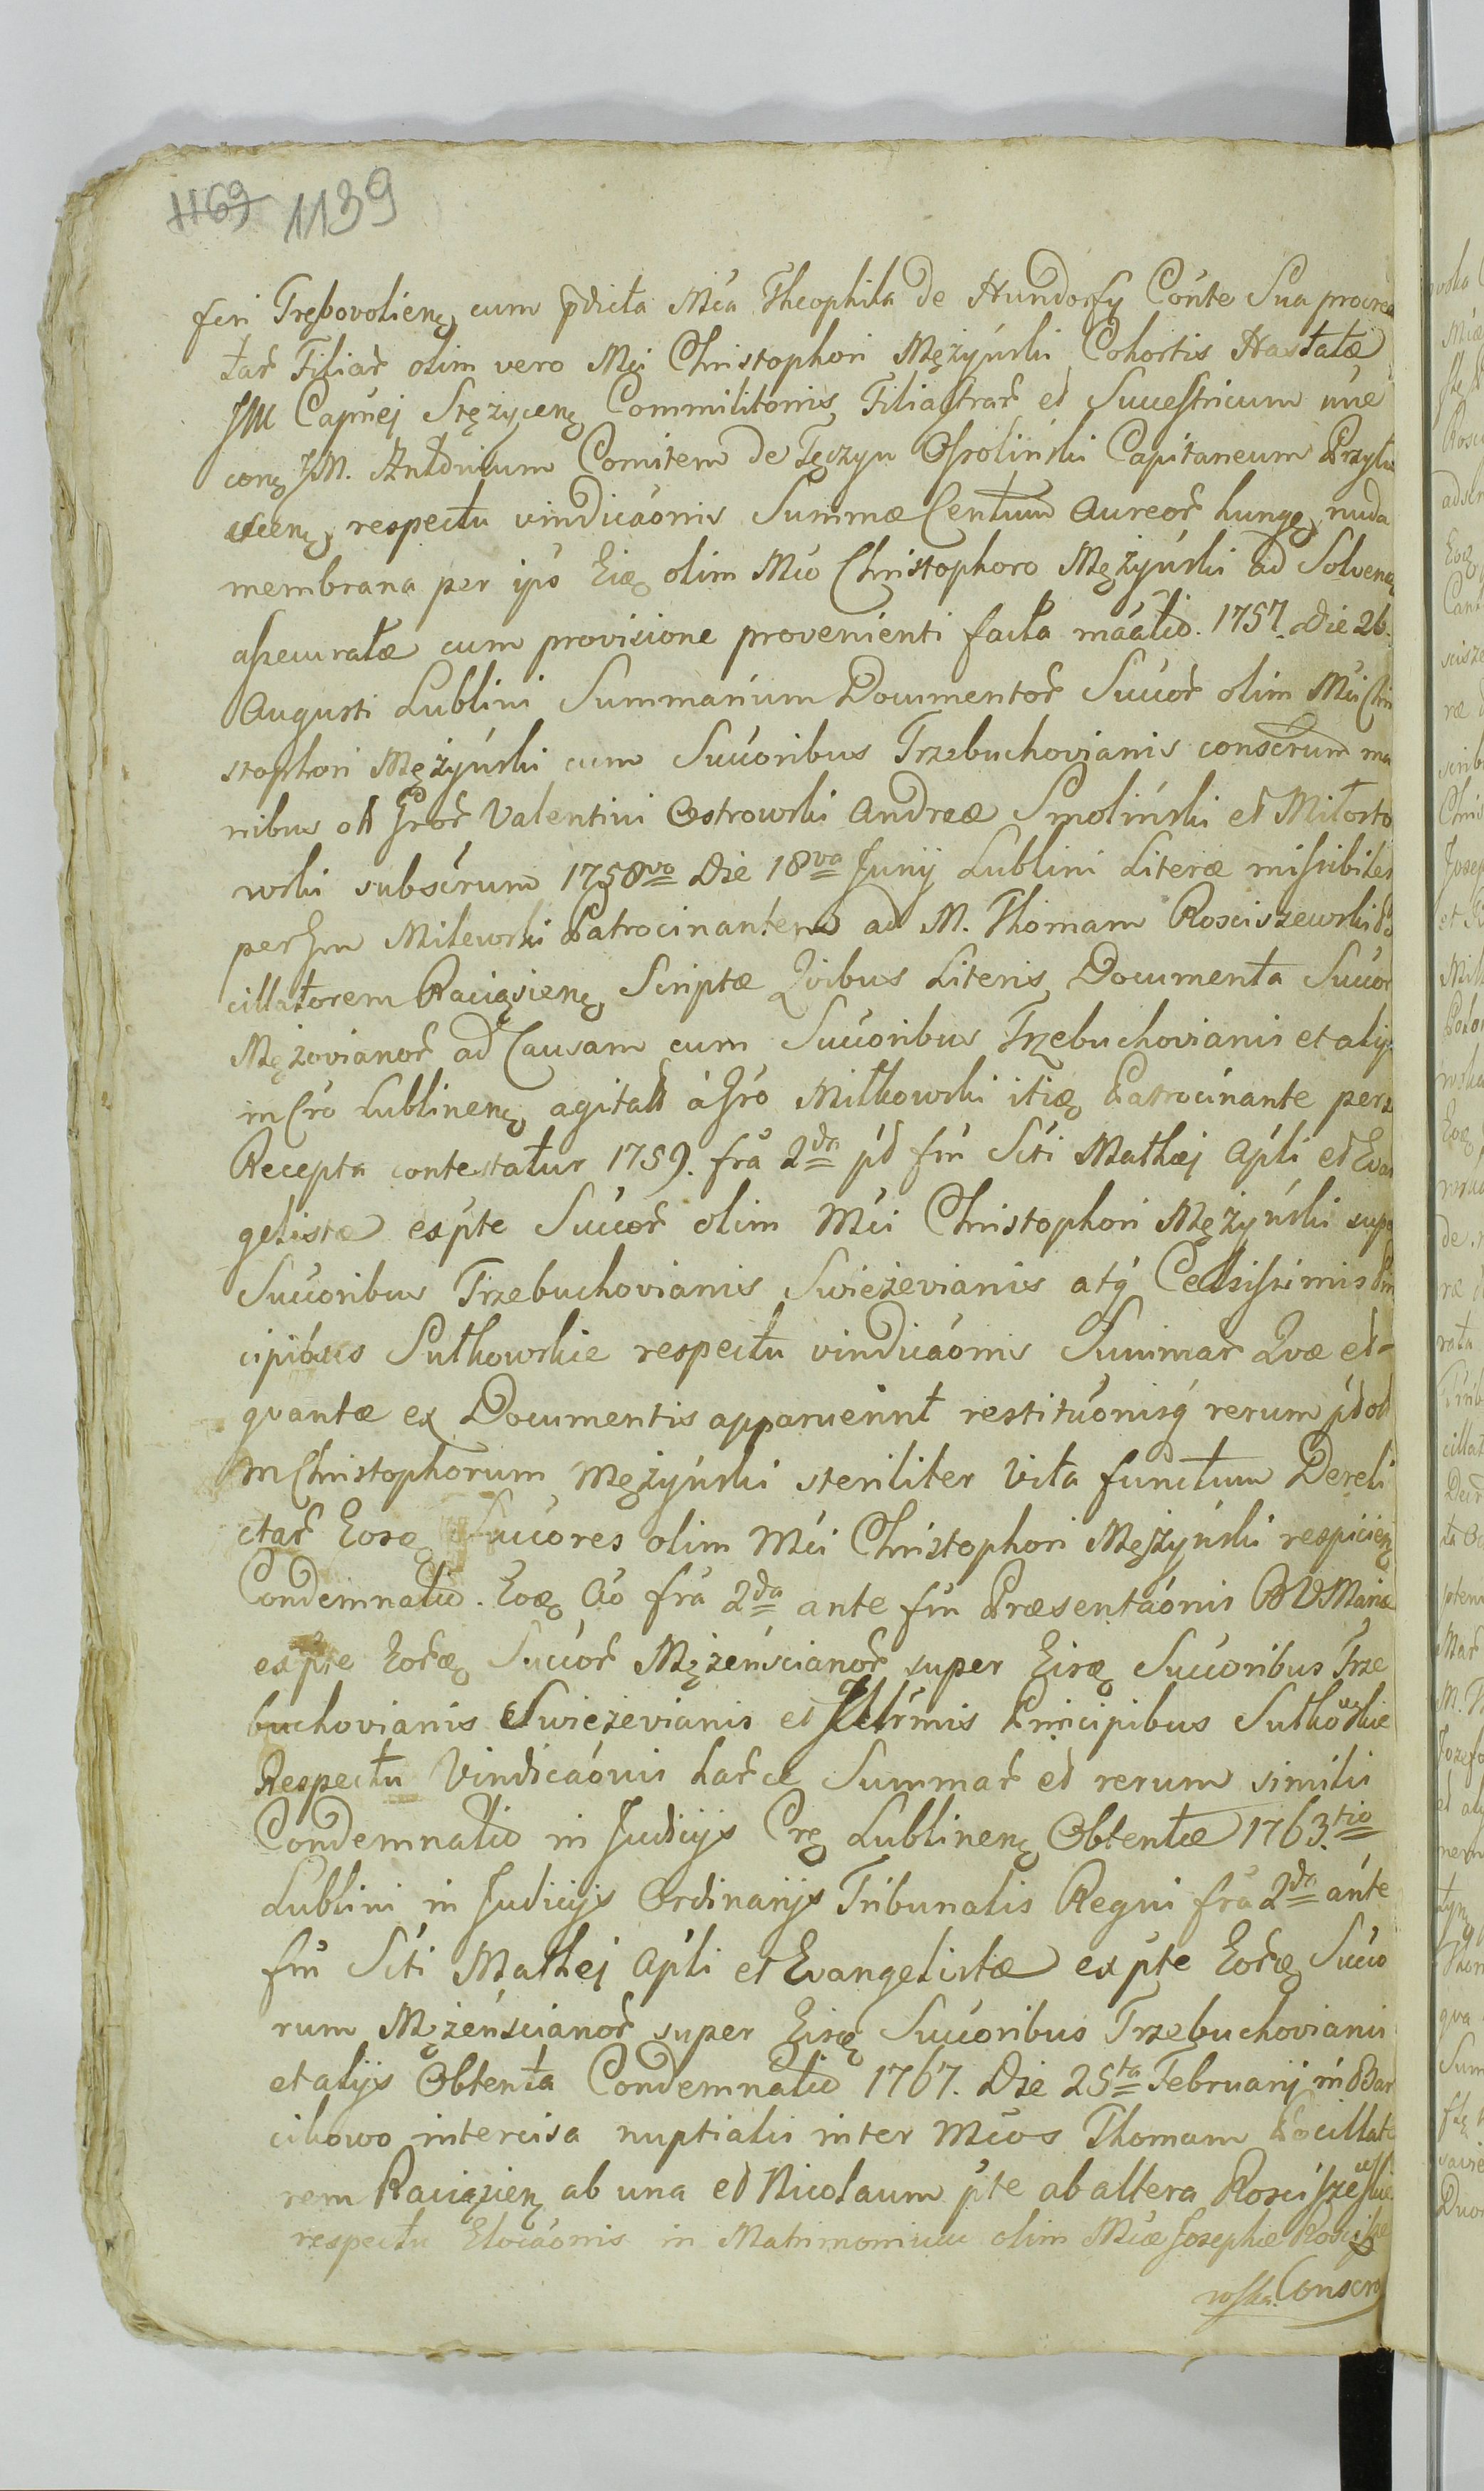 1169 1139
feri Tręboволienę cum pdicta Mća Theophila de Hundorfy Cónte Sua procrea
tar Filiar olim vero Mći Christophori Mężyński Cohortis Hastatæ
JM Capnej Stęzycenę Commilitonis Filiastrar et Successricum une
conę JM. Antonium Comitem de Tęczyn Ossoliński Capitaneum Przyłu
scienę, respectu vindicaónis Summæ Centum Aureor hungę, nuda
membrana per ipś Eiæ olim Mćo Christophoro Mężyński ad Solvenę
assecuratæ cum provisione provenienti facta máátio. 1757. Die 26.
Augusti Lublini Summarium Documentor Suċor olim Mći Chri
stophori Mężyński cum Suċoribus Trzebuchovianis conscrum ma
nibus olt Gror Valentini Ostrowski Andreæ Smoliński et Miłosto
wski subscrum 1758vo Die 18va Junij Lublini Literæ missibiles
per Gm Milewski Patrocinantem ad M. Thomam Rosciszewski Po
cillatorem Raciązienę Scriptæ Qvibus Literis Documenta Suċor
Mężovianor ad Causam cum Suċoribus Trzebuchovianis et alijs
in Cró Lublinenę agitatt à Gró Miłkowski itiæ Patrocinante per se
Recepta contestatur 1759. frá 2da pt fm Scti Mathæi Apli et Evan
gelistæ exṕte Suċor olim Mći Christophori Mężyński supe
Suċoribus Trzebuchovianis Swieżevianis atq Celsissimis Prin
cipibus Sułkowskie respectu vindicaónis Summar Qvæ et
qvantæ ex Documentis apparuerint restituónisq rerum pt olt
M Christophorum Mężyński steriliter vita functum Dereli
ctar Eosæ Suċores olim Mći Christophori Mężyński respicienę
Condemnatio. Eoæ Ao frá 2da ante fm Præsentaónis B V Mariæ
exṕte Eoræ Suċor Mężeńscianor super Eisæ Suċoribus Trze
buchovianis Swieżevianis et Illrmis Principibus Sułkowskie
Respectu Vindicaónis harce Summar et rerum similis
Condemnatio in Judicijs Crę Lublinenę Obtentæ 1763.tio
Lublini in Judicijs Ordinarijs Tribunalis Regni frá 2da ánte
fm Scti Mathej Apli et Evangelistæ exṕte Eoræ Suċo
rum Mężeńscianor super Eisæ Suċoribus Trzebuchovianis
et alijs Obtenta Condemnatio 1767. Die 25ta Februarij in Bar
cikowo intercisa nuptialis inter Mćos Thomam Pocillato
rem Raciązienę ab una et Nicolaum ṕte ab altera Rosciszewskie
respectu Elocaónis in Matrimonium olim Mćæ Josephæ Rościsze
wska. Conscrę